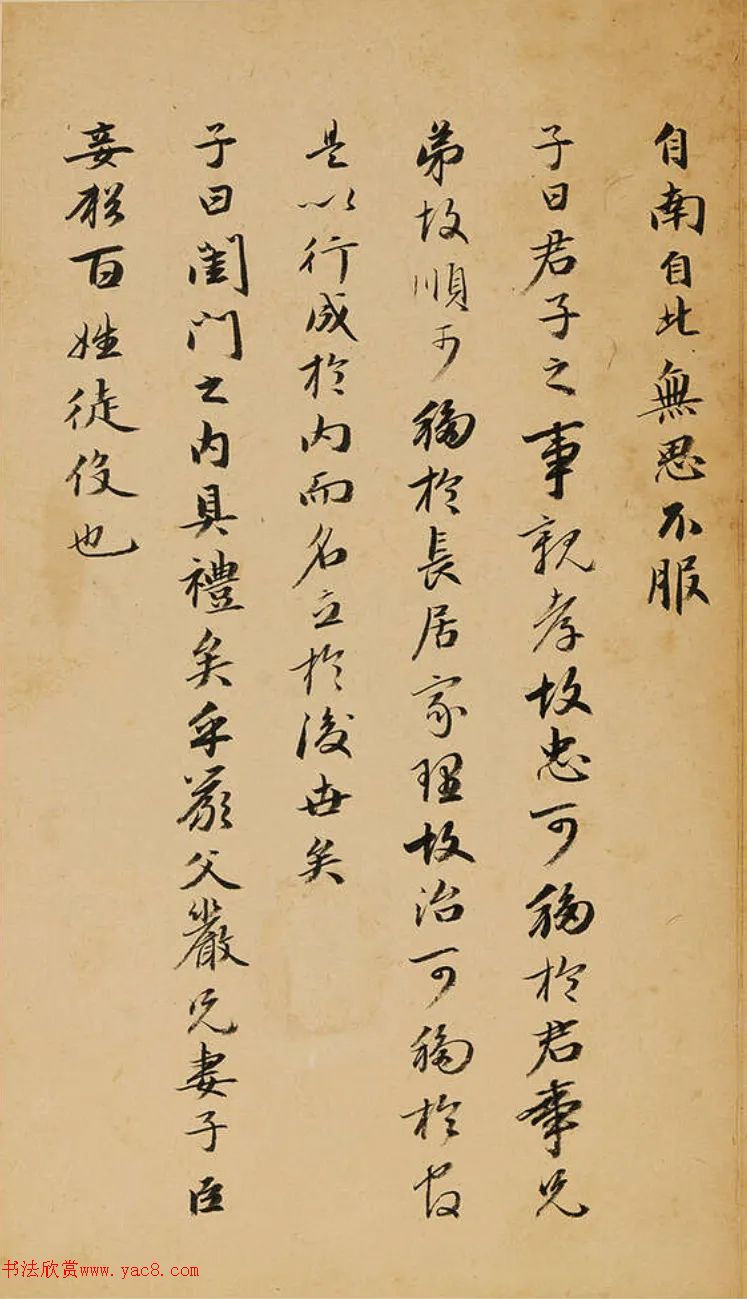 自南自北無思不服
子曰君子之事親孝故忠可移於君事兄
弟故順可移於長居家理故治可移於官
是以行成於内而名立於後世矣
子曰閨門之内具禮矣乎嚴父嚴兄妻子臣
妾猶百姓徒役也
书法欣赏www.yac8.com